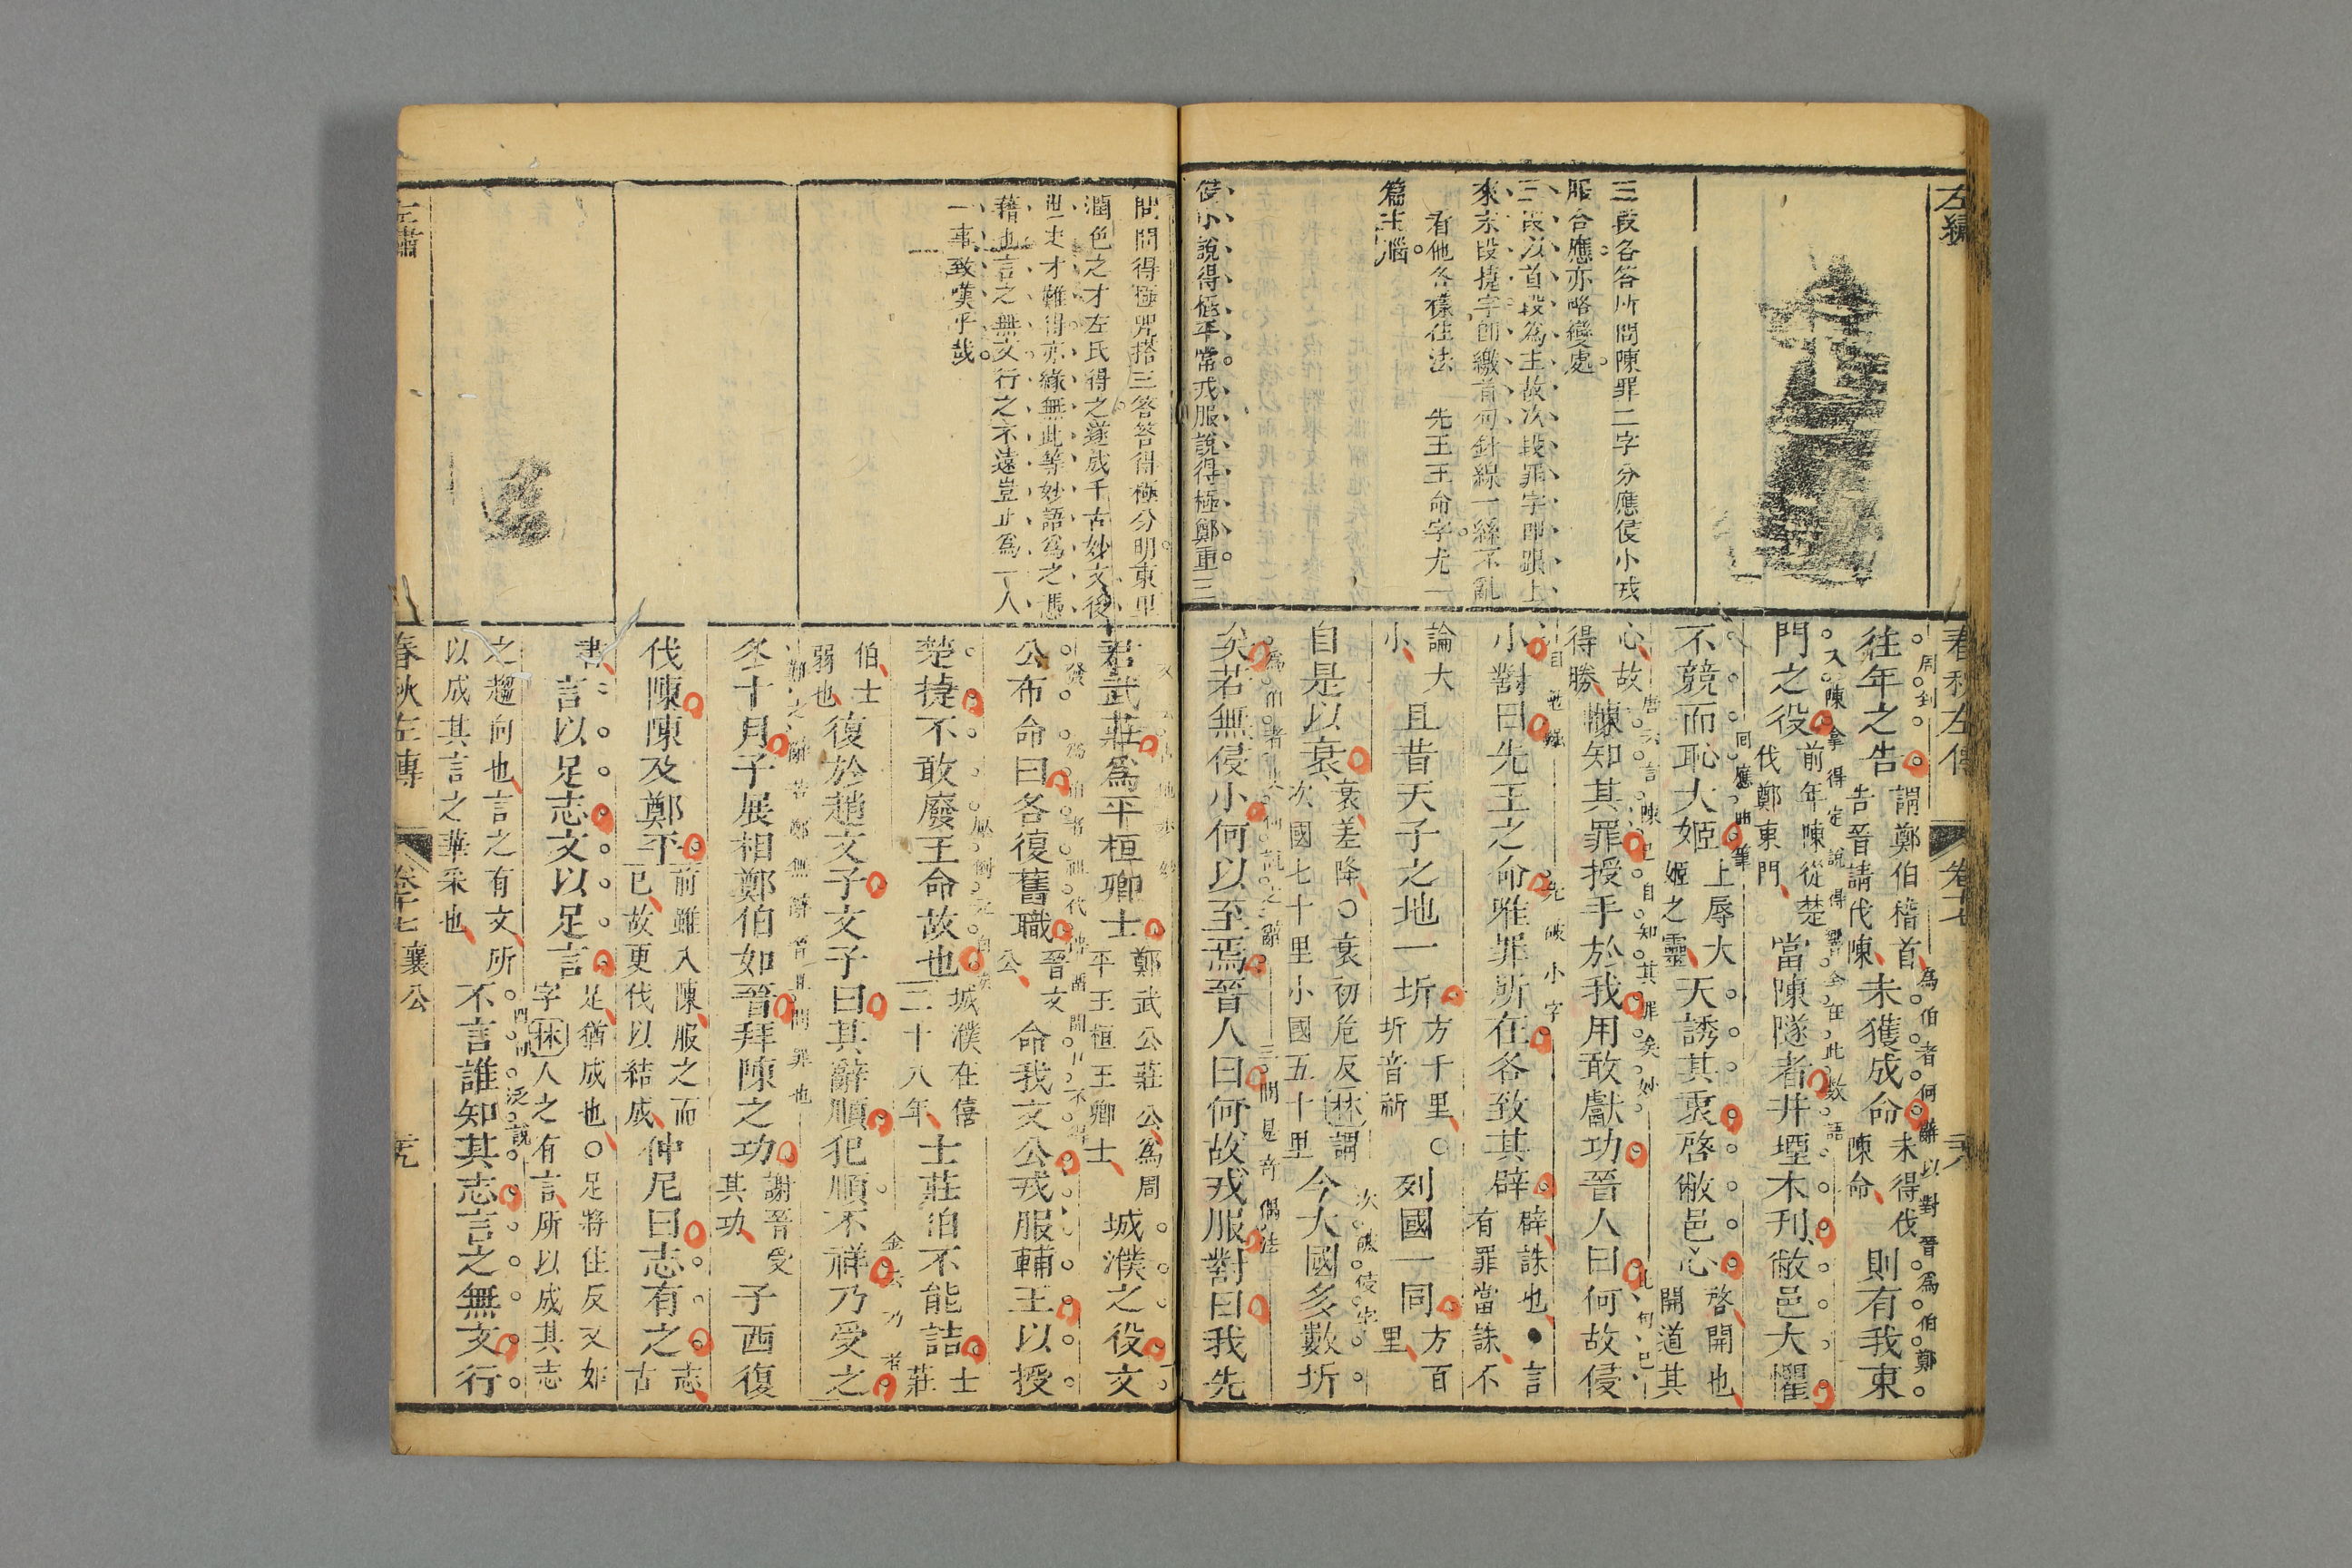 左繡
三段各答所問陳罪二字分應侵小戎
服合應亦略變處
三段以首段為主故次段罪字即跟上
來末段捷字即繳首何針線一絲不亂
看他各樣住法 先王王命字尤一
篇主腦
侵小說得極平常戎服說得極鄭重三
春秋左傳 卷十七
周到
往年之告
謂鄭伯稽首
告晉請伐陳
未獲成命
未得伐
陳命
則有我東
為伯者何辭以對晉為伯鄭
門之役
前年陳從楚
伐鄭東門
當陳隧者井堙木刊敝邑大懼
不競而恥大姬
上辱大
姬之靈
天誘其衷啓敝邑心
啓開也
開道其
心故
得勝
陳知其罪授手於我用敢獻功晉人曰何故侵
小對曰先王之命唯罪所在各致其辟
辟誅也●言
有罪當誅不
論大
小
且昔天子之地一圻
方千里○
圻音祈
列國一同
方百
里
自是以衰
衰差降○衰初危反林謂
次國七十里小國五十里
今大國多數圻
矣若無侵小何以至焉晉人曰何故戎服對曰我先
三問見奇偶法
問問得極兜搭三答答得極分明東里
潤色之才左氏得之遂成千古妙文後
世史才難得亦緣無此等妙語為之憑
藉也言之無文行之不遠豈止為一人
一事致嘆乎哉
君武莊為平桓卿士
鄭武公莊公為周
平王桓王卿士
城濮之役文
公布命曰各復舊職
晉文
公
命我文公戎服輔王以授
楚捷不敢廢王命故也
城濮在僖
二十八年
士莊伯不能詰
士
莊
伯士
弱也
復於趙文子文子曰其辭順犯順不祥乃受之
冬十月子展相鄭伯如晉拜陳之功
謝晉受
其功
子西復
伐陳陳及鄭平
前雖入陳服之而
已故更伐以結成
仲尼曰志有之
志
古
書
言以足志文以足言
足猶成也○足將住反又如
字林人之有言所以成其志
之趨向也言之有文所
以成其言之華采也
不言誰知其志言之無文行
左繡
春秋左傳 卷十七 襄公